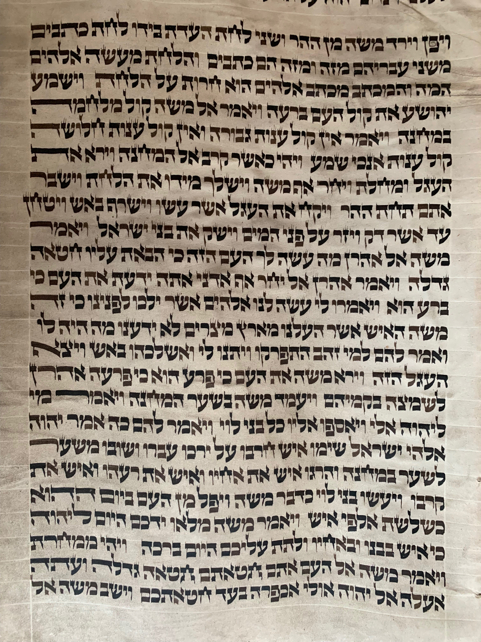 ויפן וירד משה מן ההר ושני לחת העדת בידו לחת כתבים
משני עבריהם מזה ומזה הם כתבים והלחת מעשה אלהים
המה והמכתב מכתב אלהים הוא חרות על הלחת וישמע
יהושע את קול העם ברעה ויאמר אל משה קול מלחמה
במחנה ויאמר אין קול ענות גבורה ואין קול ענות חלושה
קול ענות אנכי שמע ויהי כאשר קרב אל המחנה וירא את
העגל ומחלת ויחר אף משה וישלך מידו את הלחת וישבר
אתם תחת ההר ויקח את העגל אשר עשו וישרף באש ויטחן
עד אשר דק ויזר על פני המים וישק את בני ישראל ויאמר
משה אל אהרן מה עשה לך העם הזה כי הבאת עליו חטאה
גדלה ויאמר אהרן אל יחר אף אדני אתה ידעת את העם כי
ברע הוא ויאמרו לי עשה לנו אלהים אשר ילכו לפנינו כי זה
משה האיש אשר העלנו מארץ מצרים לא ידענו מה היה לו
ואמר להם למי זהב התפרקו ויתנו לי ואשלכהו באש ויצא
העגל הזה וירא משה את העם כי פרע הוא כי פרעה אהרן
לשמצה בקמיהם ויעמד משה בשער המחנה ויאמר מי
ליהוה אלי ויאספו אליו כל בני לוי ויאמר להם כה אמר יהוה
אלהי ישראל שימו איש חרבו על ירכו עברו ושובו משער
לשער במחנה והרגו איש את אחיו ואיש את רעהו ואיש את
קרבו ויעשו בני לוי כדבר משה ויפל מן העם ביום ההוא
כשלשת אלפי איש ויאמר משה מלאו ידכם היום ליהוה
כי איש בבנו ובאחיו ולתת עליכם היום ברכה ויהי ממחרת
ויאמר משה אל העם אתם חטאתם חטאה גדלה ועתה
אעלה אל יהוה אולי אכפרה בעד חטאתכם וישב משה אל